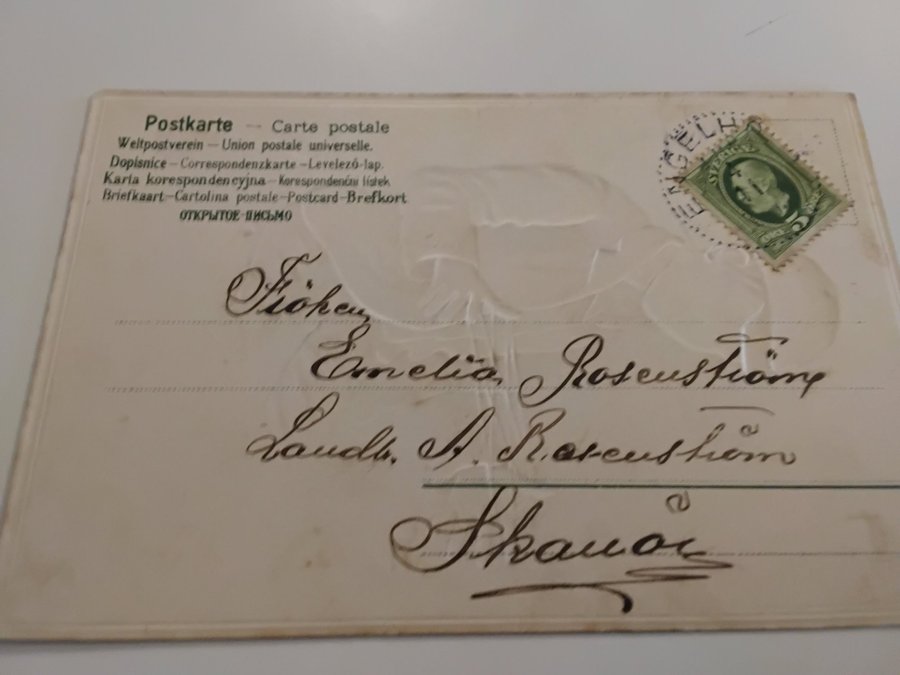 Postkarte — Carte postale
Weltpostverein — Union postale universelle.
Dopisnice — Correspondenzkarte — Levelező-lap.
Karta korespondencyjna — Korespondenční lístek
Briefkaart — Cartolina postale — Postcard — Brefkort
ОТКРЫТОЕ ПИСЬМО
ENGELH
SVERIGE
5
Fröken
Emelia Rosenström
Landb. A. Rosenström
Skanör